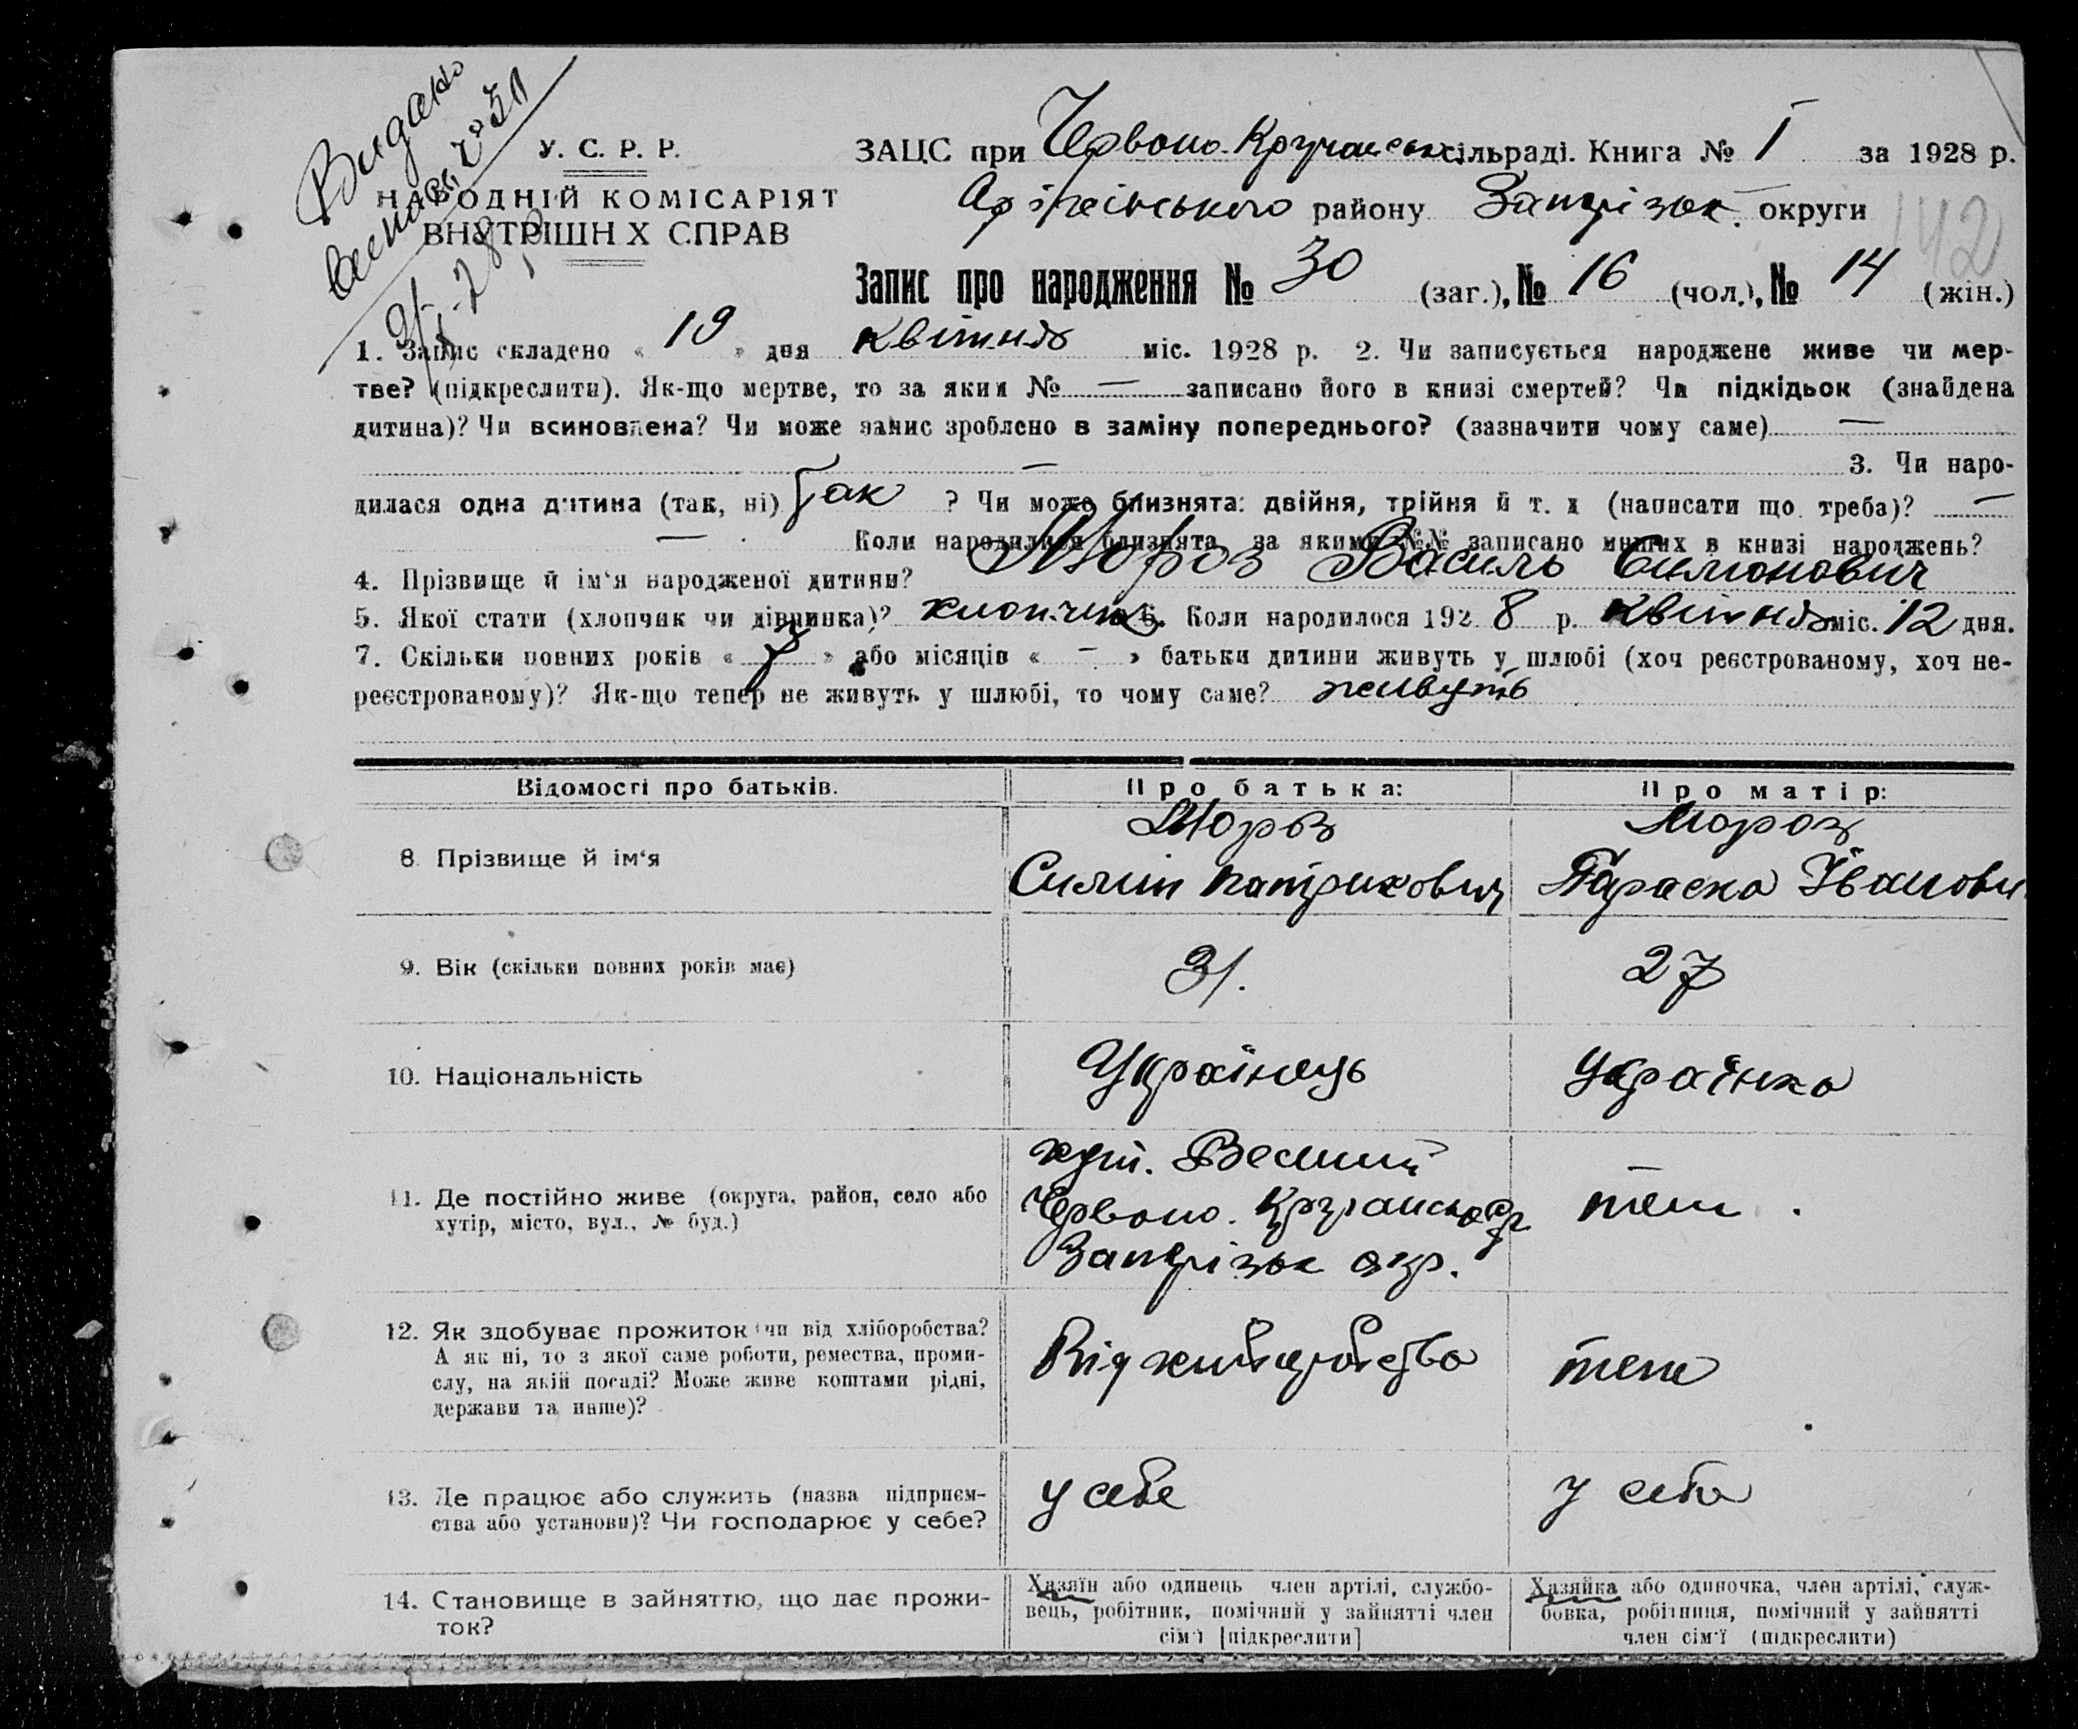 Видано
У. С. Р. Р.
НАРОДНІЙ КОМІСАРІЯТ
ВНУТРІШН Х СПРАВ
ЗАЦС при Червоно-Кручанськ. сільраді. Книга № I за 1928 р.
району Запорізьк. округи
142
Запис про народження № 30 (заг.), № 16 (чол.), № 14 (жін.)
1. Запис складено « 19 » дня квітня міс. 1928 р. 2. Чи записується народжене живе чи мер-
тве? (підкреслити). Як-що мертве, то за яким № — записано його в книзі смертей? Чи підкідьок (знайдена
дитина)? Чи всиновлена? Чи може запис зроблено в заміну попереднього? (зазначити чому саме) —
— 3. Чи наро-
дилася одна дитина (так, ні) Так ? Чи може близнята: двійня, трійня й т. д (написати що треба)? —
— Коли народилися близнята, за якими №№ записано инших в книзі народжень?
4. Прізвище й ім'я народженої дитини? Мороз Василь Симонович
5. Якої стати (хлопчик чи дівчинка)? хлопчик 6. Коли народилося 192 8 р. квітня міс. 12 дня.
7. Скільки повних років « 7 » або місяців « - » батьки дитини живуть у шлюбі (хоч реєстрованому, хоч не-
реєстрованому)? Як-що тепер не живуть у шлюбі, то чому саме? живуть
Відомості про батьків. Про батька: Про матір:
8. Прізвище й ім'я Мороз Мороз
Симон Патрихович Параска Іванови
9. Вік (скільки повних років має) 31. 27
10. Національність Українець Українка
11. Де постійно живе (округа, район, село або
хутір, місто, вул., № буд.)
хут. Веслий
Червоно-Кручанськ
Запорізьк окр.
теж
12. Як здобуває прожиток (чи від хліборобства?
А як ні, то з якої саме роботи, ремества, проми-
слу, на якій посаді? Може живе коштами рідні,
держави та инше)?
Від хліборобства теж
13. Де працює або служить (назва підприєм-
ства або установи)? Чи господарює у себе?
у себе у себе
14. Становище в зайняттю, що дає прожи-
ток?
Хазяїн або одинець член артілі, службо-
вець, робітник, помічний у зайнятті член
сім'ї [підкреслити]
Хазяйка або одиночка, член артілі, служ-
бовка, робітниця, помічний у зайнятті
член сім'ї (підкреслити)